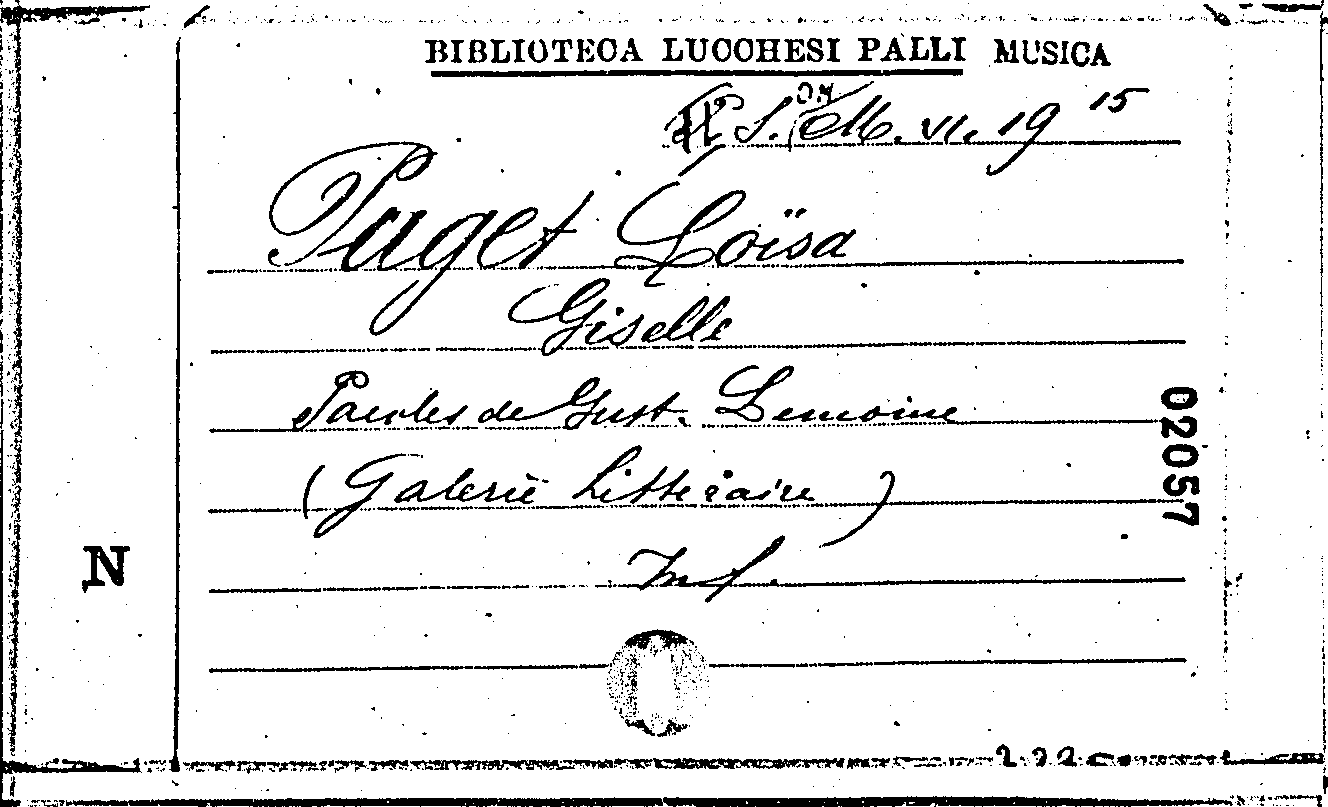 BIBLIOTECA LUCCHESI PALLI MUSICA
S. M. VI. 19 15
Paget Loïsa
Giselle
Paroles de Gust. Lemoine
(Galerie Littéraire)
In f.
N
02057